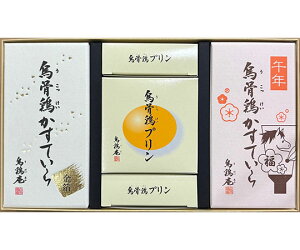 うこっけい
烏骨鶏かすていら
金箔
烏鶏庵
烏骨鶏プリン
烏骨鶏プリン
烏鶏庵
烏骨鶏プリン
午年
うこっけい
烏骨鶏かすていら
福
烏鶏庵